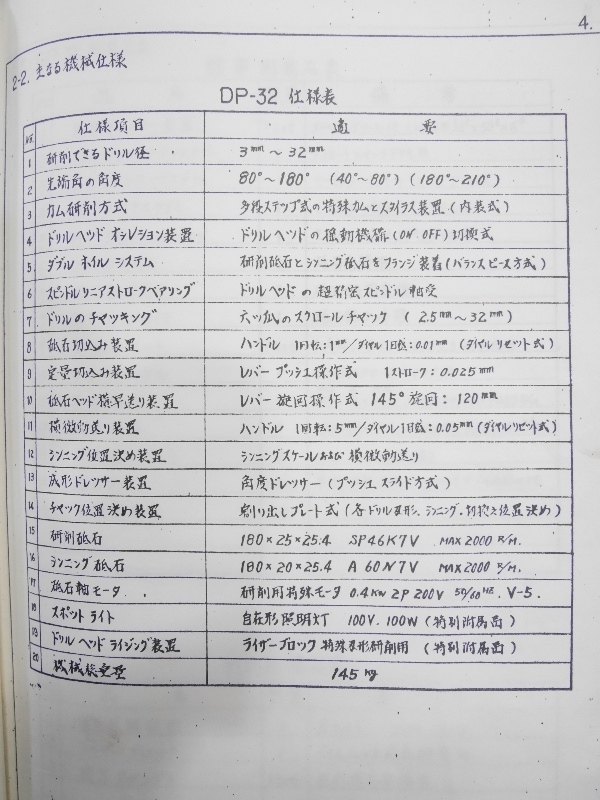 4.
2-2. 主なる機械仕様
DP-32 仕様表
No. 仕様項目 適要
1 研削できるドリル径 3mm ～ 32mm
2 先端角の角度 80°～180° (40°～80°) (180°～210°)
3 カム研削方式 多段ステップ式の特殊カムとスタイラス装置 (内装式)
4 ドリルヘッド オシレション装置 ドリルヘッドの揺動機器 (ON OFF) 切換式
5 ダブル ホイル システム 研削砥石とシンニング砥石をフランジ装着 (バランスピース方式)
6 スピンドルリニアストロークベアリング ドリルヘッドの超精密スピンドル軸受
7 ドリルのチャッキング 六ツ爪のスクロールチャック (2.5mm～32mm)
8 砥石切込み装置 ハンドル 1回転:1mm/ダイヤル1目盛:0.01mm (ダイヤルリセット式)
9 定量切込み装置 レバー プッシュ操作式 1ストローク:0.025mm
10 砥石ヘッド横早送り装置 レバー 旋回操作式 145°旋回:120mm
11 横微動送り装置 ハンドル 1回転:5mm/ダイヤル1目盛:0.05mm (ダイヤルリセット式)
12 シンニング位置決め装置 シンニングスケールおよび横微動送り
13 成形ドレッサー装置 角度ドレッサー (プッシュスライド方式)
14 チャック位置決め装置 割り出しプレート式 (各ドリル刃形、シンニング、切換え位置決め)
15 研削砥石 180×25×25.4 SP46K7V MAX 2000 R/M.
16 シンニング砥石 180×20×25.4 A 60N7V MAX 2000 R/M.
17 砥石軸モータ 研削用特殊モータ 0.4KW 2P 200V 50/60HZ. V-5.
18 スポットライト 自在形照明灯 100V. 100W (特別附属品)
19 ドリルヘッドライジング装置 ライザーブロック 特殊刃形研削用 (特別附属品)
20 機械総重量 145kg